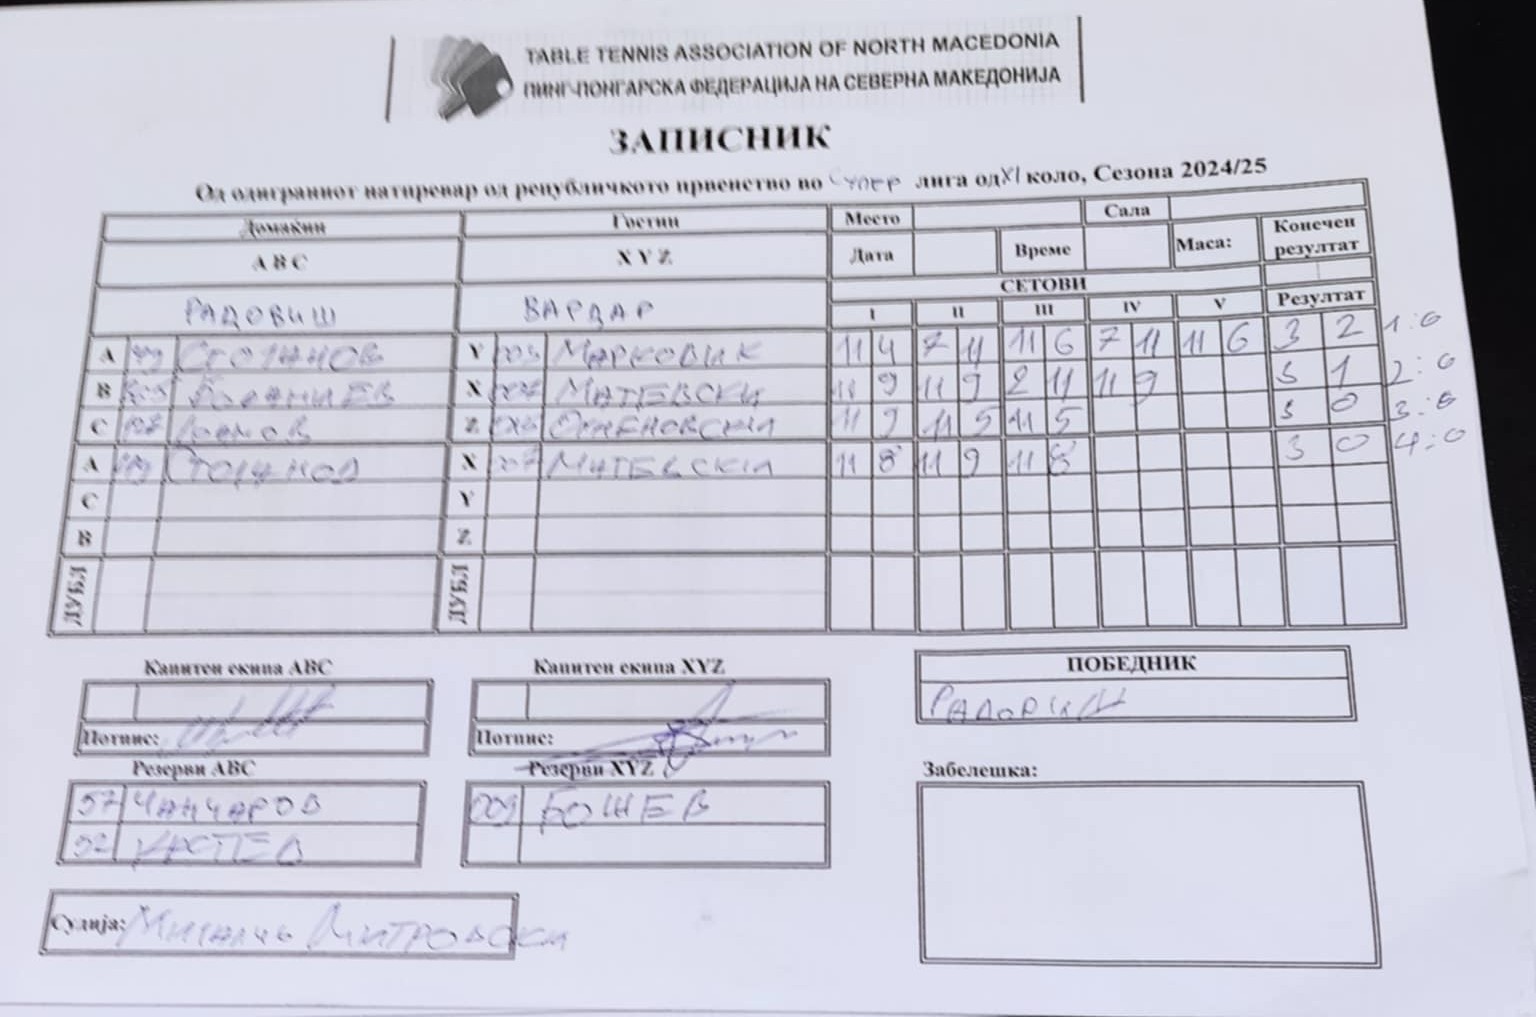 TABLE TENNIS ASSOCIATION OF NORTH MACEDONIA
ПИНГ-ПОНГАРСКА ФЕДЕРАЦИЈА НА СЕВЕРНА МАКЕДОНИЈА
ЗАПИСНИК
Од одиграниот натпревар од републичкото првенство во СУПЕР лига од XI коло, Сезона 2024/25
Домаќин Гостин Место Сала Конечен резултат
A B C X Y Z Дата Време Маса:
СЕТОВИ
РАДОВИШ ВАРДАР I II III IV V Резултат
A СТОЈАНОВ Y МАРКОВИК 11 4 7 11 11 6 7 11 11 6 3 2 1:0
B X МАТЕВСКИ 11 9 11 9 2 11 11 9 3 1 2:0
C Z ОГНЕНОВСКИ 11 9 11 5 11 5 3 0 3:0
A СТОЈАНОВ X МАТЕВСКИ 11 8 11 9 11 8 3 0 4:0
C Y
B Z
ДУБЛ ДУБЛ
Капитен екипа ABC Капитен екипа XYZ ПОБЕДНИК
РАДОВИШ
Потпис: Потпис:
Резерви ABC Резерви XYZ Забелешка:
57 ЧАНЧАРОВ 009 БОШЕВ
52 КРСТЕВ
Судија: Митровски